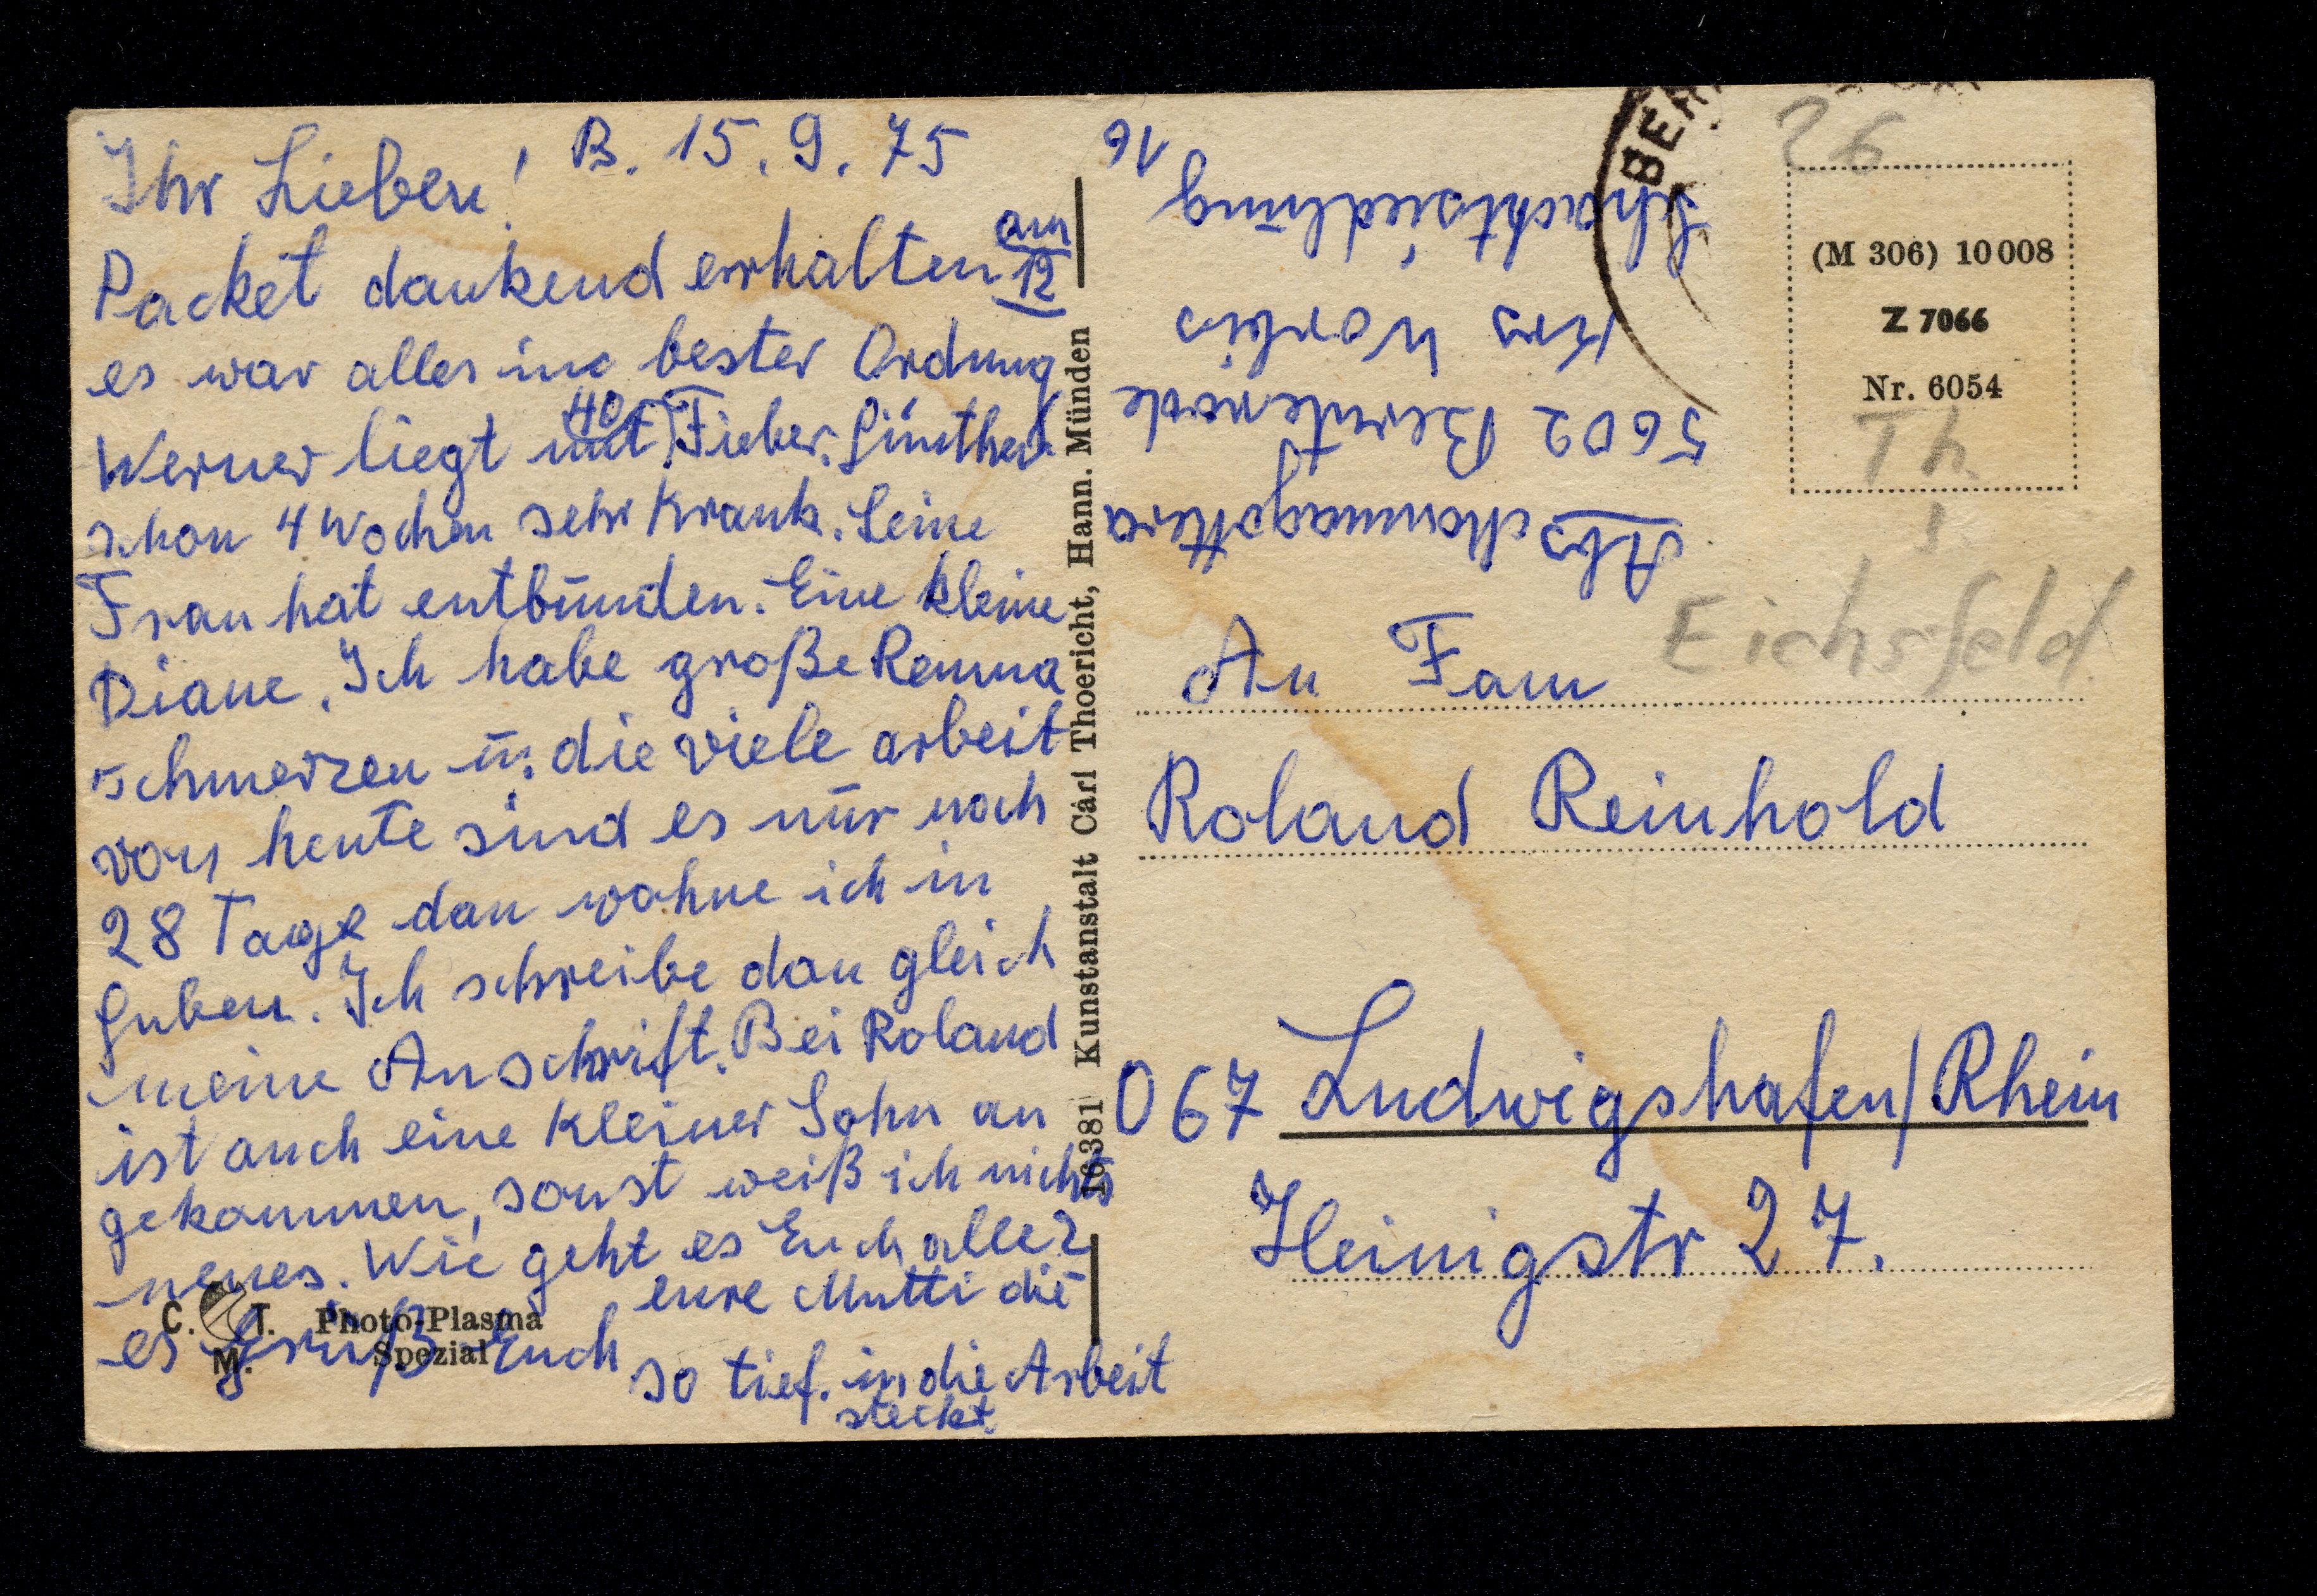 Ihr Lieben! B. 15.9.75
Packet dankend erhalten am 12
es war alles in bester Ordnung
Werner liegt mit 40 Fieber. Günther
schon 4 Wochen sehr krank. Seine
Frau hat entbunden. Eine kleine
Diane. Ich habe große Reuma
schmerzen u. die viele arbeit
von heute sind es nur noch
28 Tage dan wohne ich in
Guben. Ich schreibe dan gleich
meine Anschrift. Bei Roland
ist auch eine kleiner Sohn an
gekommen, sonst weiß ich nichts
neues. Wie geht es Euch alle?
es grüßt Euch eure Mutti die
so tief in die Arbeit
steckt.
C. T. M. Photo-Plasma
Spezial
16381 Kunstanstalt Carl Thoericht, Hann. Münden
Abs
5602 Bernterode
Krs Worbis
Schachtsiedlung
16
BER
26
(M 306) 10008
Z 7066
Nr. 6054
Th.
Eichsfeld
An Fam
Roland Reinhold
067 Ludwigshafen/Rhein
Heinigstr 27.